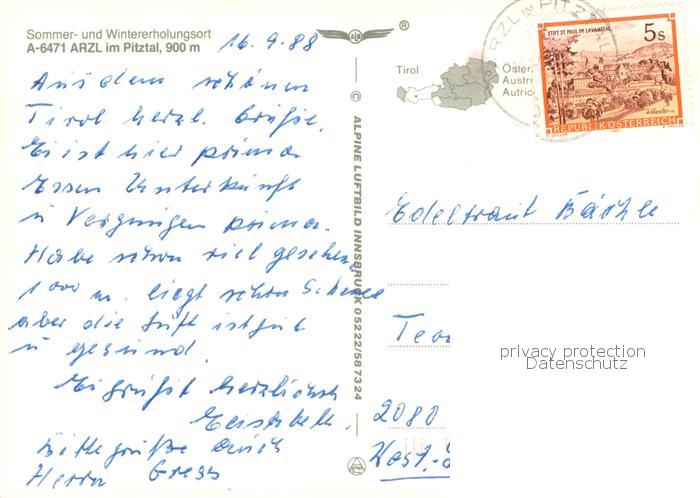 Sommer- und Wintererholungsort
A-6471 ARZL im Pitztal, 900 m
16.9.88
®
Aus dem schönen
Tirol herzl. Grüße.
Es ist hier prima
Essen Unterkunft
u Vergnügen prima.
Habe schon viel gesehen,
1000 m. liegt schon Schnee
aber die Luft ist gut
u gesund.
Es grüßt herzlichst
Bitte grüße auch
Herrn
© ALPINE LUFTBILD INNSBRUCK 05222/587324
Tirol
Öster
Austri
Autric
ARZL IM PITZTAL
STIFT ST. PAUL IM LAVANTTAL
5s
REPUBLIK ÖSTERREICH
Edeltraut Bächle
2080
privacy protection
Datenschutz